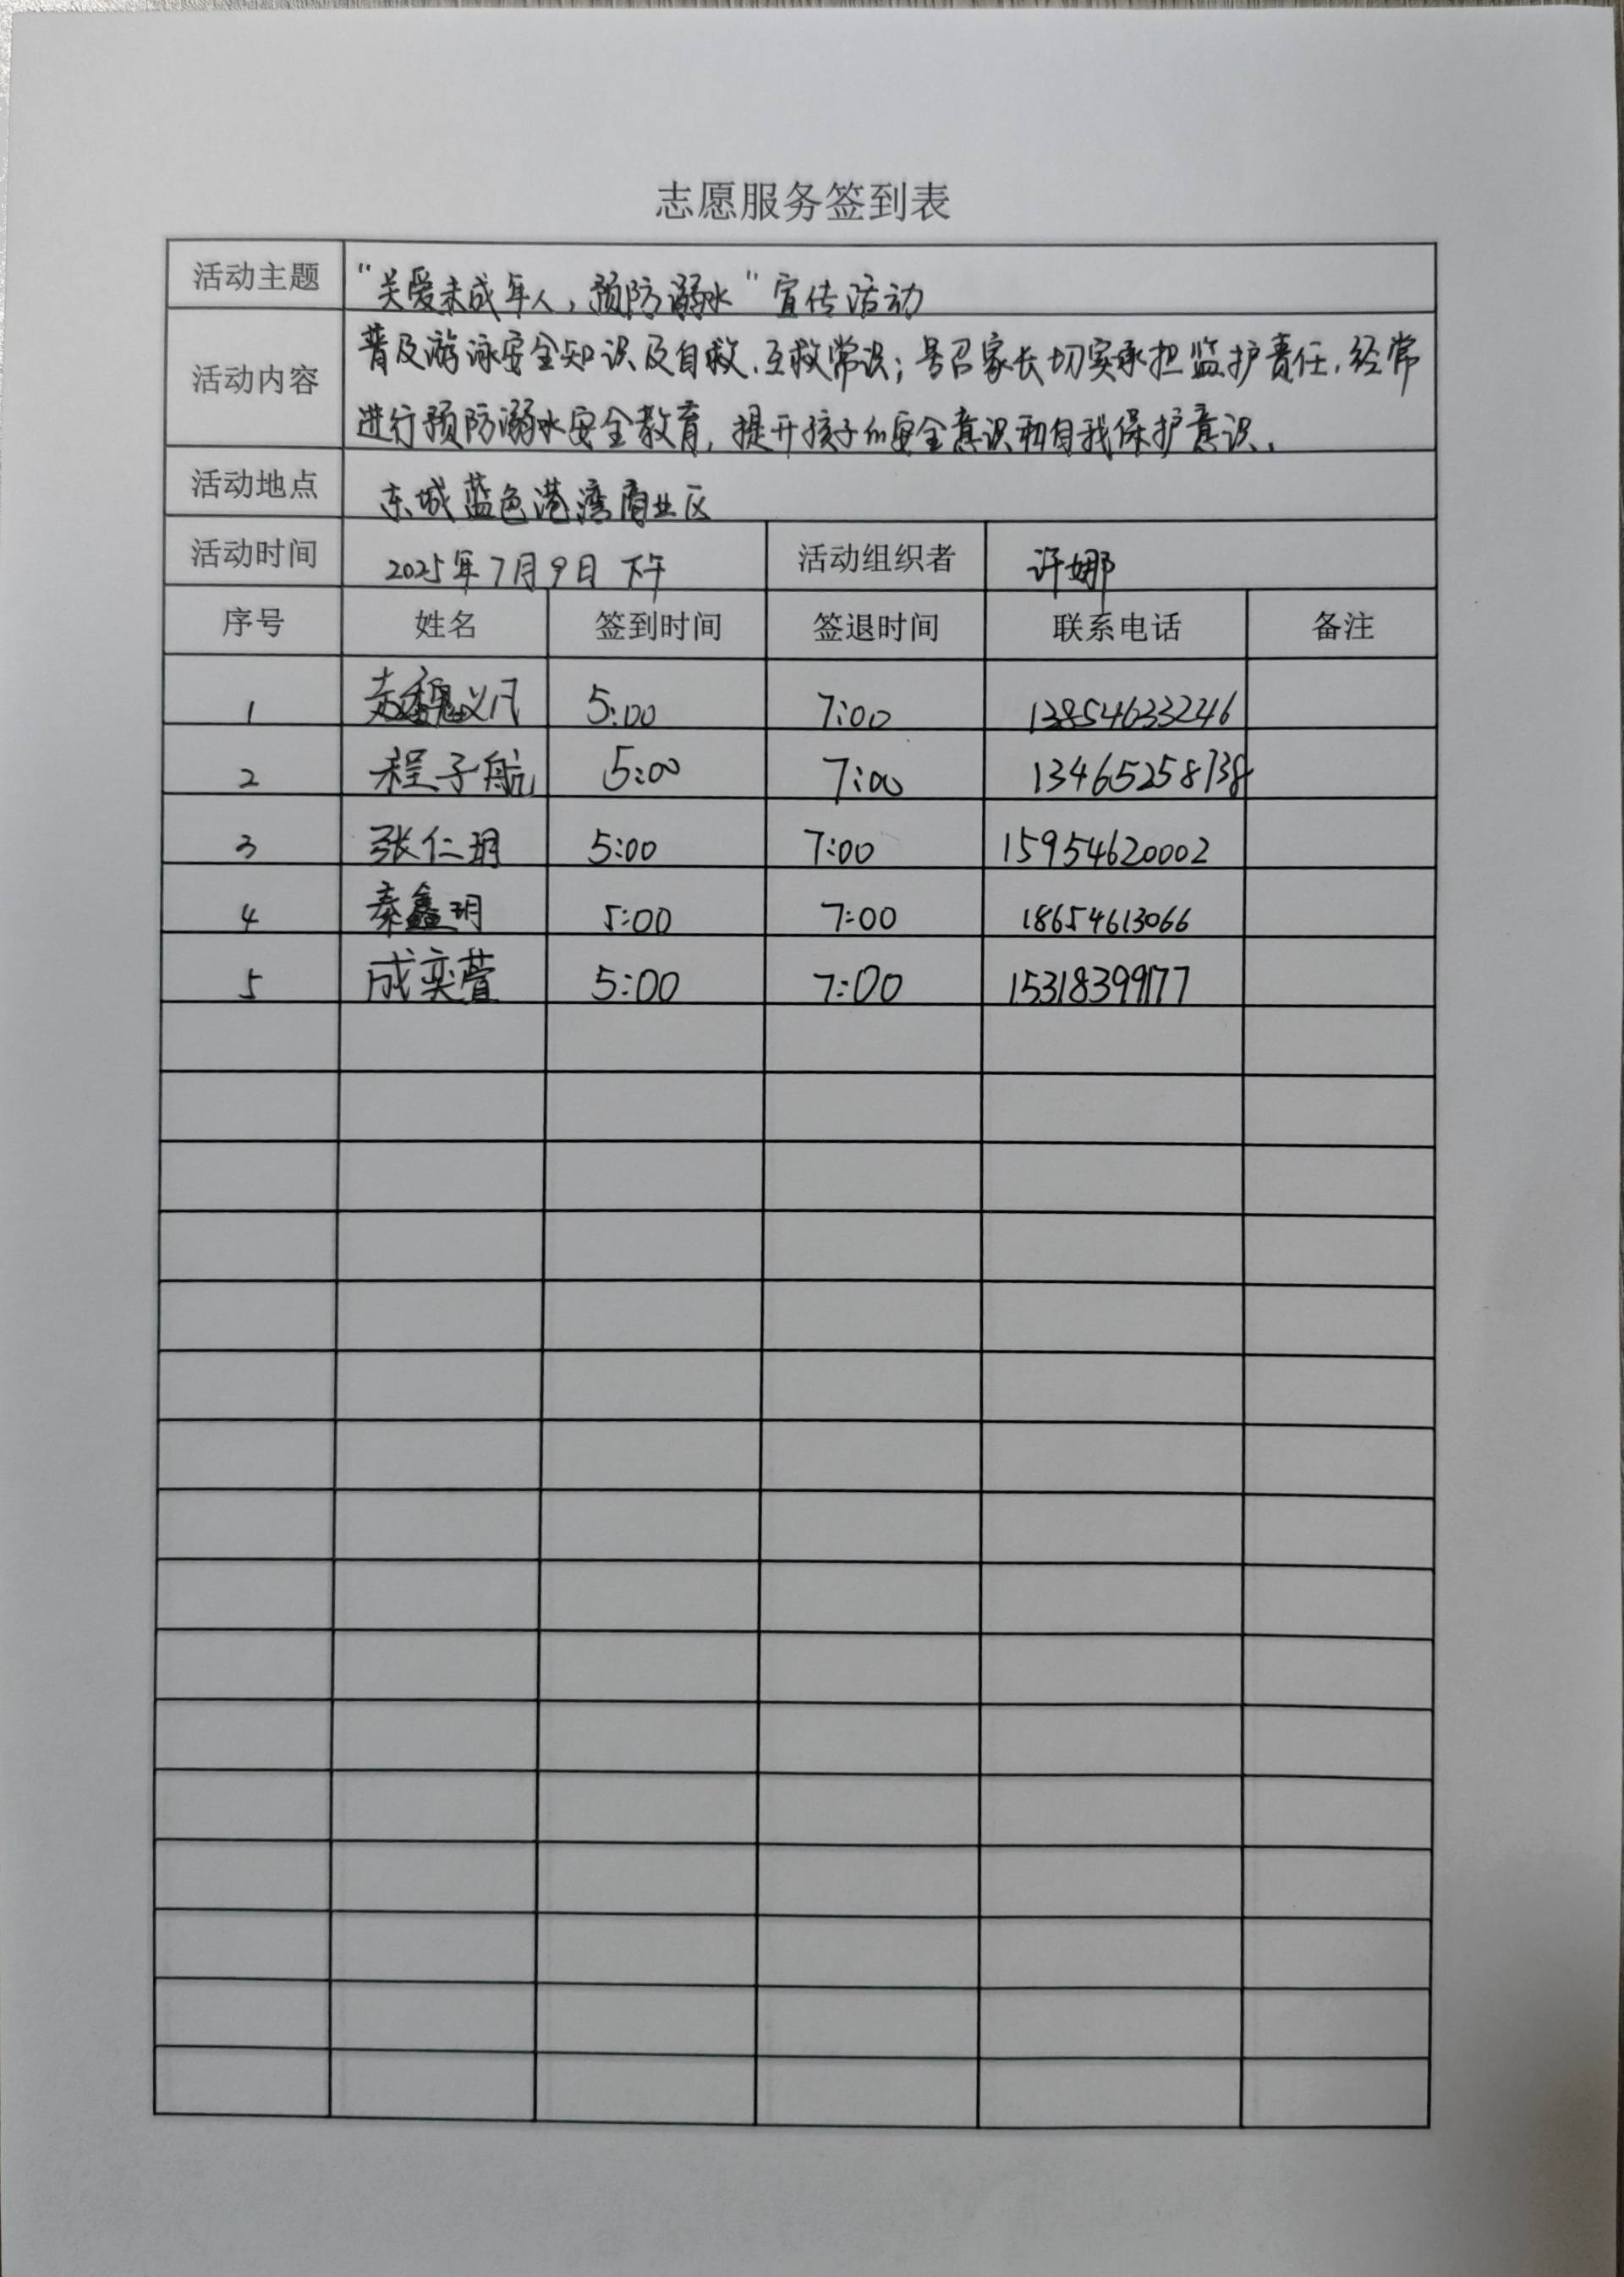 志愿服务签到表
活动主题 "关爱未成年人，预防溺水"宣传活动
活动内容 普及游泳安全知识及自救、互救常识；号召家长切实承担监护责任，经常
进行预防溺水安全教育，提升孩子们安全意识和自我保护意识。
活动地点 东城蓝色港湾商业区
活动时间 2025年7月9日 下午 活动组织者 许娜
序号 姓名 签到时间 签退时间 联系电话 备注
1 魏义凡 5:00 7:00 13854633246
2 程子航 5:00 7:00 13465258738
3 张仁玥 5:00 7:00 15954620002
4 秦鑫玥 5:00 7:00 18654613066
5 成奕萱 5:00 7:00 15318399177